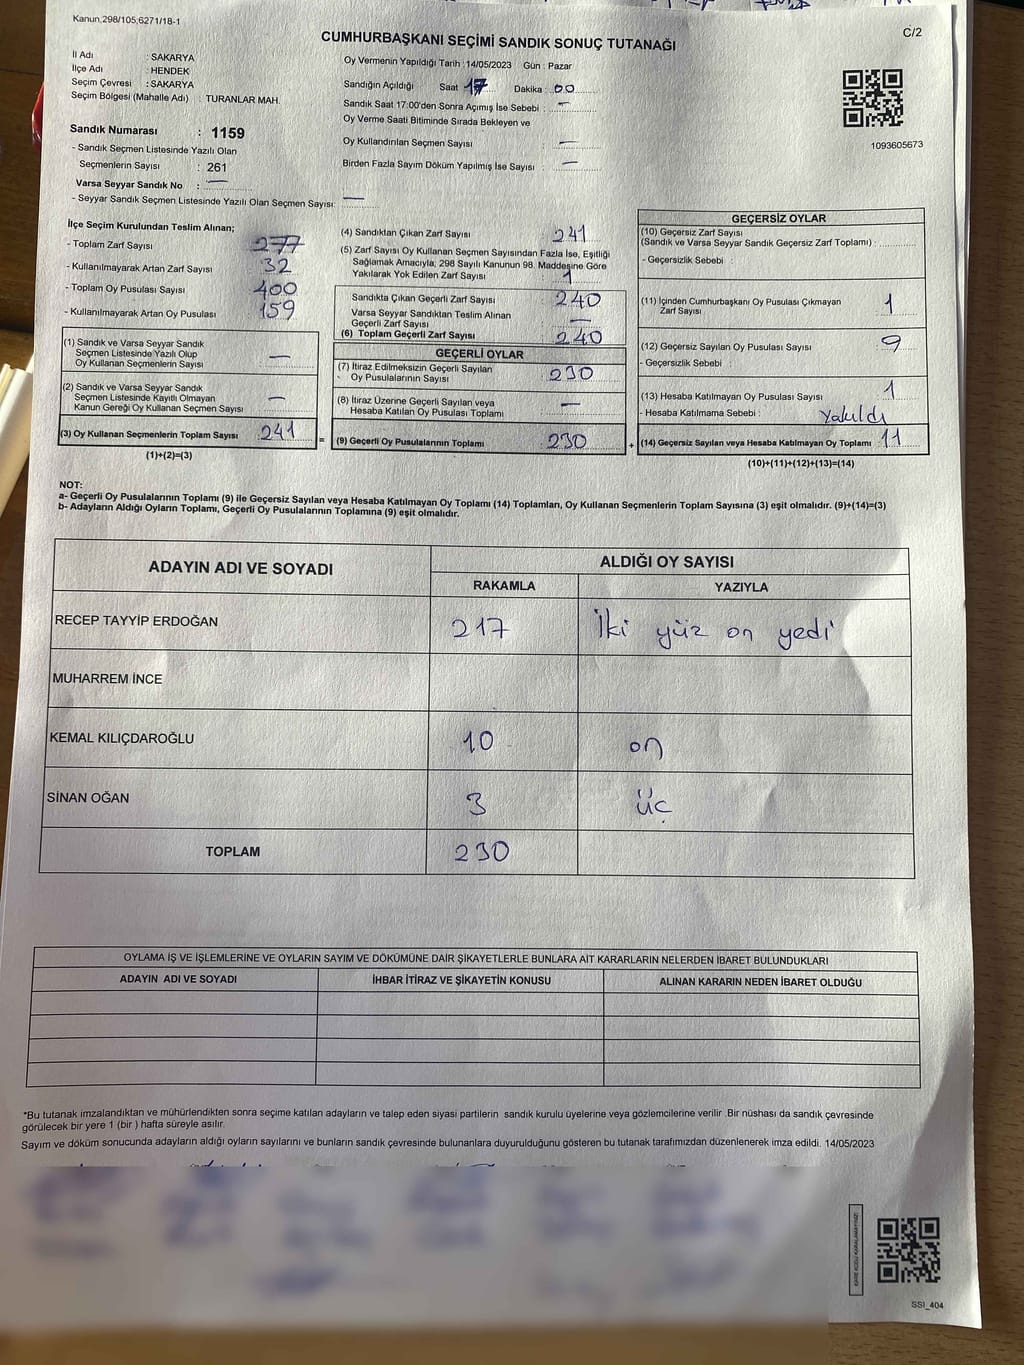 Kanun,298/105;6271/18-1
C/2
CUMHURBAŞKANI SEÇİMİ SANDIK SONUÇ TUTANAĞI
İl Adı : SAKARYA
İlçe Adı : HENDEK
Seçim Çevresi : SAKARYA
Seçim Bölgesi (Mahalle Adı) : TURANLAR MAH.
Sandık Numarası : 1159
- Sandık Seçmen Listesinde Yazılı Olan
Seçmenlerin Sayısı : 261
Varsa Seyyar Sandık No : —
- Seyyar Sandık Seçmen Listesinde Yazılı Olan Seçmen Sayısı: —
Oy Vermenin Yapıldığı Tarih :14/05/2023 Gün : Pazar
Sandığın Açıldığı Saat 17 Dakika : 00
Sandık Saat 17:00'den Sonra Açımış İse Sebebi : —
Oy Verme Saati Bitiminde Sırada Bekleyen ve
Oy Kullandırılan Seçmen Sayısı : —
Birden Fazla Sayım Döküm Yapılmış İse Sayısı : —
1093605673
İlçe Seçim Kurulundan Teslim Alınan;
- Toplam Zarf Sayısı 277
- Kullanılmayarak Artan Zarf Sayısı 32
- Toplam Oy Pusulası Sayısı 400
- Kullanılmayarak Artan Oy Pusulası 159
(1) Sandık ve Varsa Seyyar Sandık
Seçmen Listesinde Yazılı Olup
Oy Kullanan Seçmenlerin Sayısı : —
(2) Sandık ve Varsa Seyyar Sandık
Seçmen Listesinde Kayıtlı Olmayan
Kanun Gereği Oy Kullanan Seçmen Sayısı —
(3) Oy Kullanan Seçmenlerin Toplam Sayısı 241
(1)+(2)=(3)
(4) Sandıktan Çıkan Zarf Sayısı 241
(5) Zarf Sayısı Oy Kullanan Seçmen Sayısından Fazla İse, Eşitliği
Sağlamak Amacıyla, 298 Sayılı Kanunun 98. Maddesine Göre
Yakılarak Yok Edilen Zarf Sayısı 1
Sandıkta Çıkan Geçerli Zarf Sayısı 240
Varsa Seyyar Sandıktan Teslim Alınan
Geçerli Zarf Sayısı —
(6) Toplam Geçerli Zarf Sayısı 240
GEÇERLİ OYLAR
(7) İtiraz Edilmeksizin Geçerli Sayılan
Oy Pusulalarının Sayısı 230
(8) İtiraz Üzerine Geçerli Sayılan veya
Hesaba Katılan Oy Pusulası Toplamı —
= (9) Geçerli Oy Pusulalarının Toplamı 230
GEÇERSİZ OYLAR
(10) Geçersiz Zarf Sayısı
(Sandık ve Varsa Seyyar Sandık Geçersiz Zarf Toplamı) :
- Geçersizlik Sebebi :
(11) İçinden Cumhurbaşkanı Oy Pusulası Çıkmayan
Zarf Sayısı 1
(12) Geçersiz Sayılan Oy Pusulası Sayısı 9
- Geçersizlik Sebebi :
(13) Hesaba Katılmayan Oy Pusulası Sayısı 1
- Hesaba Katılmama Sebebi : Yakıldı
+ (14) Geçersiz Sayılan veya Hesaba Katılmayan Oy Toplamı 11
(10)+(11)+(12)+(13)=(14)
NOT:
a- Geçerli Oy Pusulalarının Toplamı (9) ile Geçersiz Sayılan veya Hesaba Katılmayan Oy Toplamı (14) Toplamları, Oy Kullanan Seçmenlerin Toplam Sayısına (3) eşit olmalıdır. (9)+(14)=(3)
b- Adayların Aldığı Oyların Toplamı, Geçerli Oy Pusulalarının Toplamına (9) eşit olmalıdır.
ADAYIN ADI VE SOYADI
ALDIĞI OY SAYISI
RAKAMLA YAZIYLA
RECEP TAYYİP ERDOĞAN 217 İki yüz on yedi
MUHARREM İNCE
KEMAL KILIÇDAROĞLU 10 on
SİNAN OĞAN 3 üç
TOPLAM 230
OYLAMA İŞ VE İŞLEMLERİNE VE OYLARIN SAYIM VE DÖKÜMÜNE DAİR ŞİKAYETLERLE BUNLARA AİT KARARLARIN NELERDEN İBARET BULUNDUKLARI
ADAYIN ADI VE SOYADI İHBAR İTİRAZ VE ŞİKAYETİN KONUSU ALINAN KARARIN NEDEN İBARET OLDUĞU
*Bu tutanak imzalandıktan ve mühürlendikten sonra seçime katılan adayların ve talep eden siyasi partilerin sandık kurulu üyelerine veya gözlemcilerine verilir .Bir nüshası da sandık çevresinde
görülecek bir yere 1 (bir ) hafta süreyle asılır.
Sayım ve döküm sonucunda adayların aldığı oyların sayılarını ve bunların sandık çevresinde bulunanlara duyurulduğunu gösteren bu tutanak tarafımızdan düzenlenerek imza edildi. 14/05/2023
KARE KODU KARALAMAYINIZ!
SSI_404